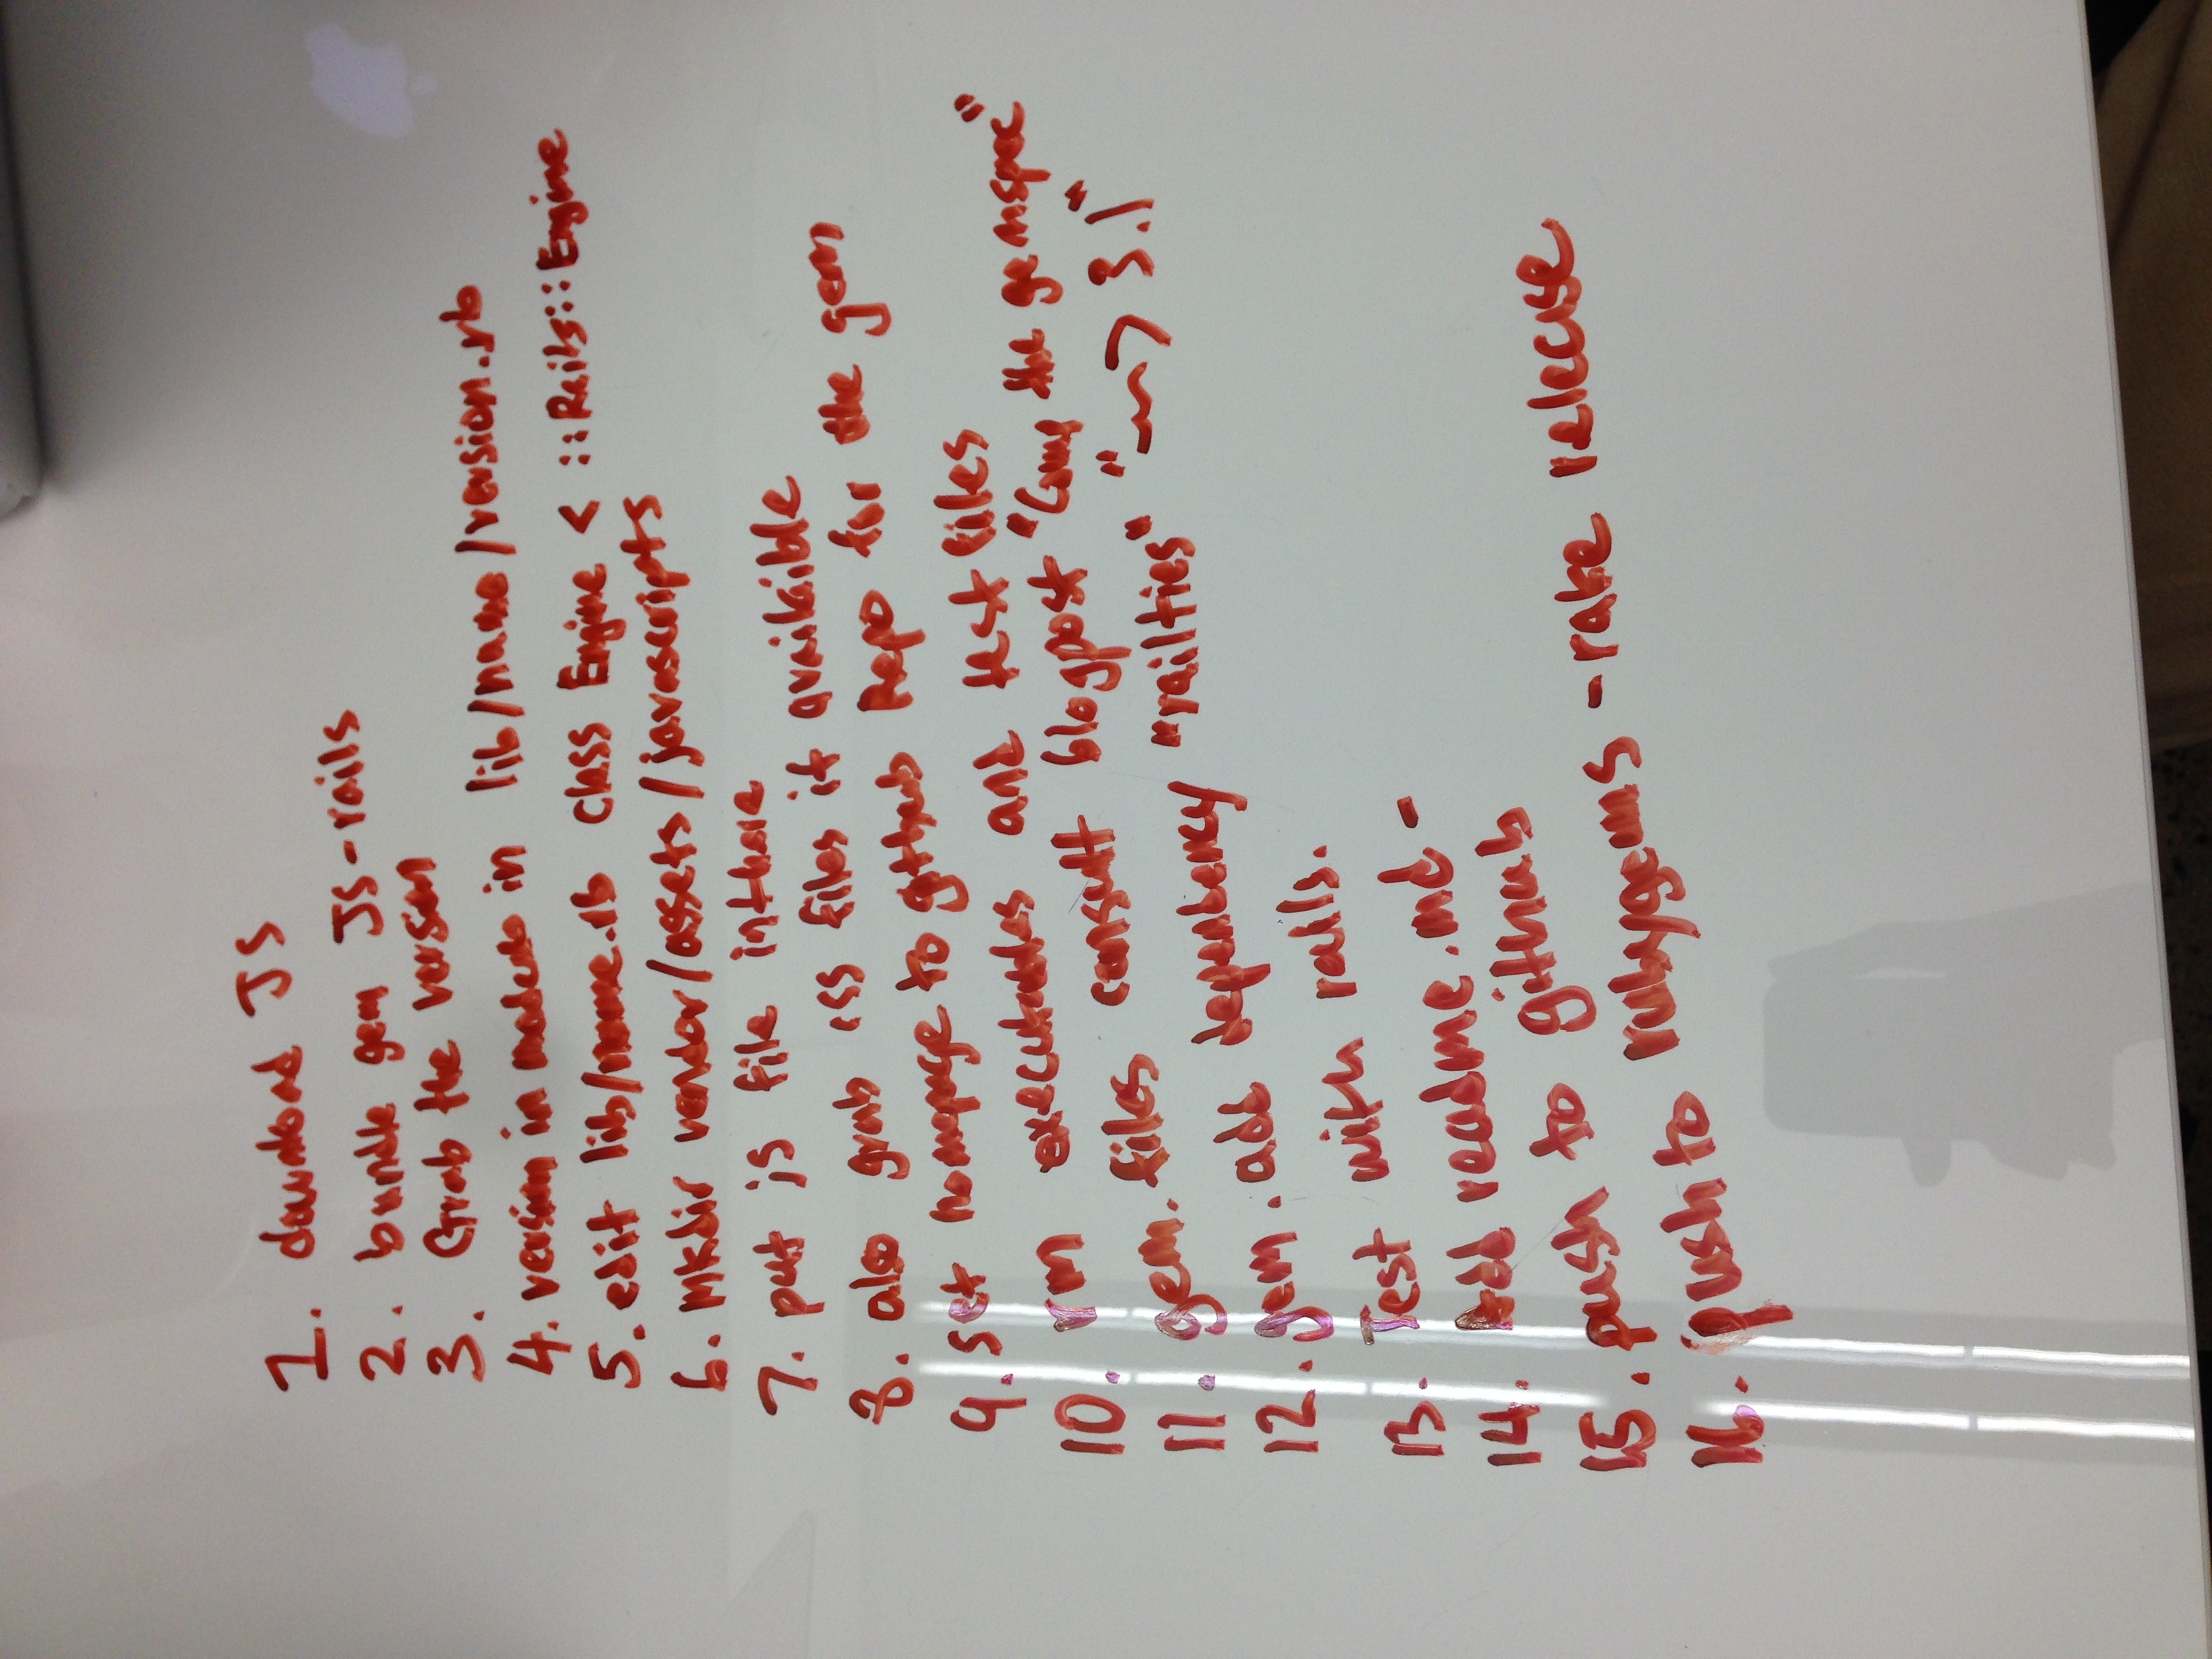 1. download JS
2. bundle gem JS-rails
3. Grab the version
4. version in module in lib/name/version.rb
5. edit lib/name.rb class Engine < ::Rails::Engine
6. mkdir vendor/assets/javascripts
7. put js file in there
8. also grab css files if availaible
9. set homepage to github Repo for the gem
10. rm executables and test files
11. gem.files consult blogpost " the gemspec"
12. gem.add dependency "railties" "~> 3.1"
13. Test with rails.
14. Add readme.md -
15. push to github
16. push to rubygems - rake release